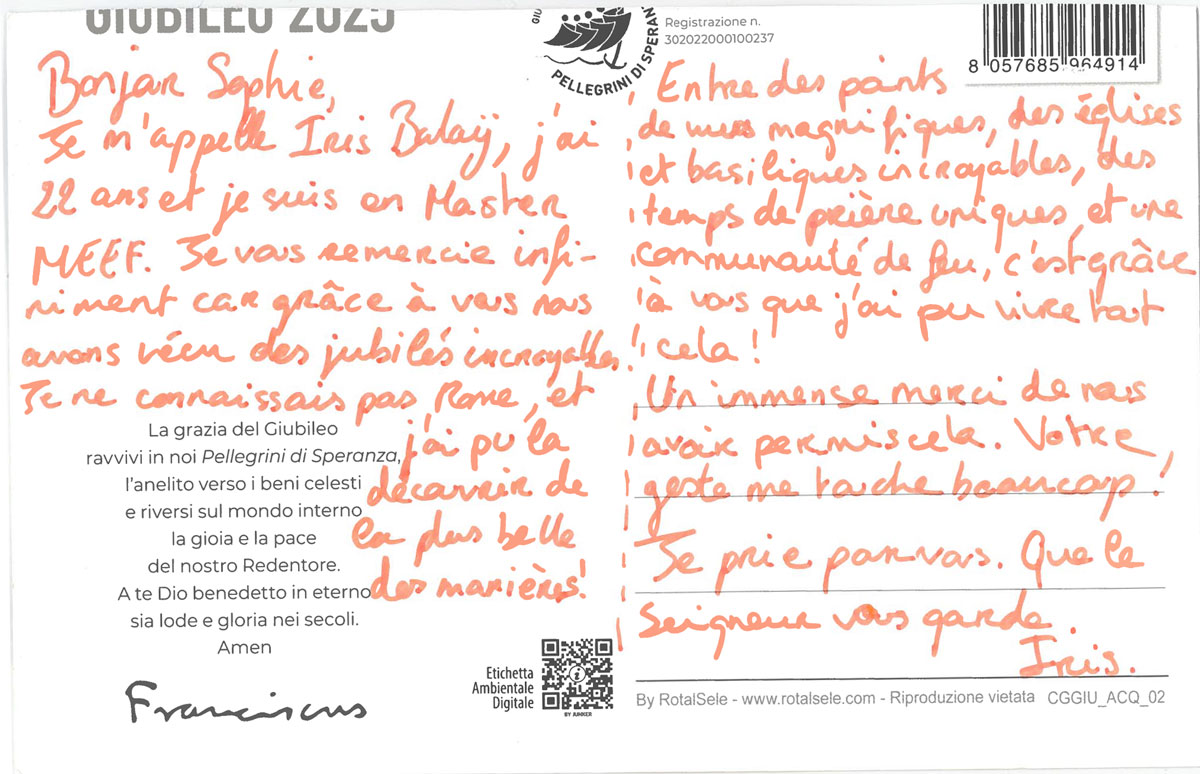 GIUBILEO 2025
PELLEGRINI DI SPERAN
Registrazione n.
302022000100237
8 057685 964914
Bonjour Sophie,
Je m'appelle Iris Balaÿ, j'ai
22 ans et je suis en Master
MEEF. Je vous remercie infi-
niment car grâce à vous nous
avons vécu des jubilés incroyables.
Je ne connaissais pas Rome, et
j'ai pu la
découvrir de
la plus belle
des manières!
La grazia del Giubileo
ravvivi in noi Pellegrini di Speranza,
l'anelito verso i beni celesti
e riversi sul mondo interno
la gioia e la pace
del nostro Redentore.
A te Dio benedetto in eterno
sia lode e gloria nei secoli.
Amen
Franciscus
Etichetta
Ambientale
Digitale
BY JUNKER
Entre des points
de vues magnifiques, des églises
et basiliques incroyables, des
temps de prière uniques, et une
communauté de feu, c'est grâce
à vous que j'ai pu vivre tout
cela!
Un immense merci de nous
avoir permis cela. Votre
geste me touche beaucoup!
Je prie pour vous. Que le
Seigneur vous garde.
Iris.
By RotalSele - www.rotalsele.com - Riproduzione vietata CGGIU_ACQ_02